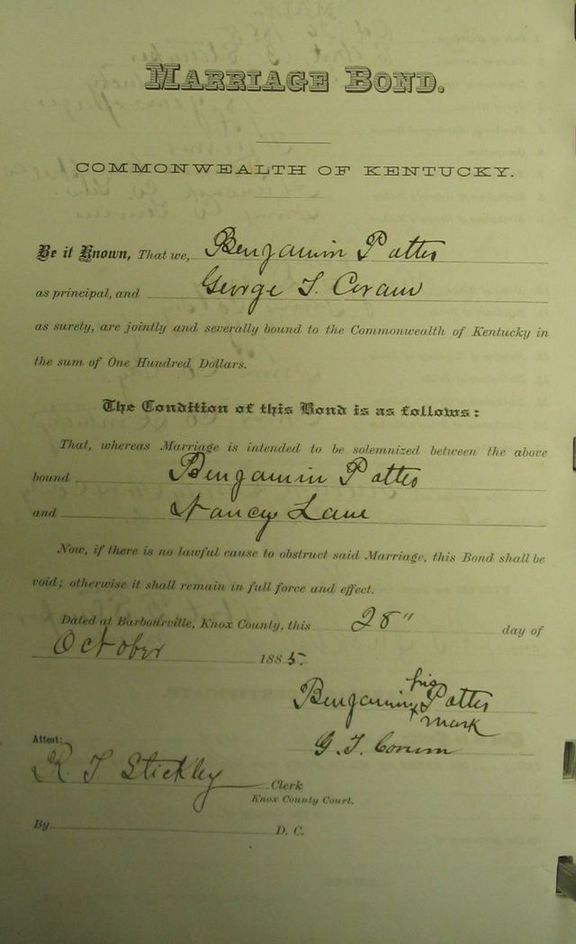 MARRIAGE BOND.
COMMONWEALTH OF KENTUCKY.
Be it Known, That we, Benjamin Pattis
as principal, and George T. Coram
as surety, are jointly and severally bound to the Commonwealth of Kentucky in
the sum of One Hundred Dollars.
The Condition of this Bond is as follows:
That, whereas Marriage is intended to be solemnized between the above
bound Benjamin Pattis
and Nancy Lane
Now, if there is no lawful cause to obstruct said Marriage, this Bond shall be
void; otherwise it shall remain in full force and effect.
Dated at Barbourville, Knox County, this 28" day of
October 1885.
his
Benjamin x Pattis
mark
G. T. Corum
Attest:
R T Stickley Clerk
Knox County Court.
By D. C.